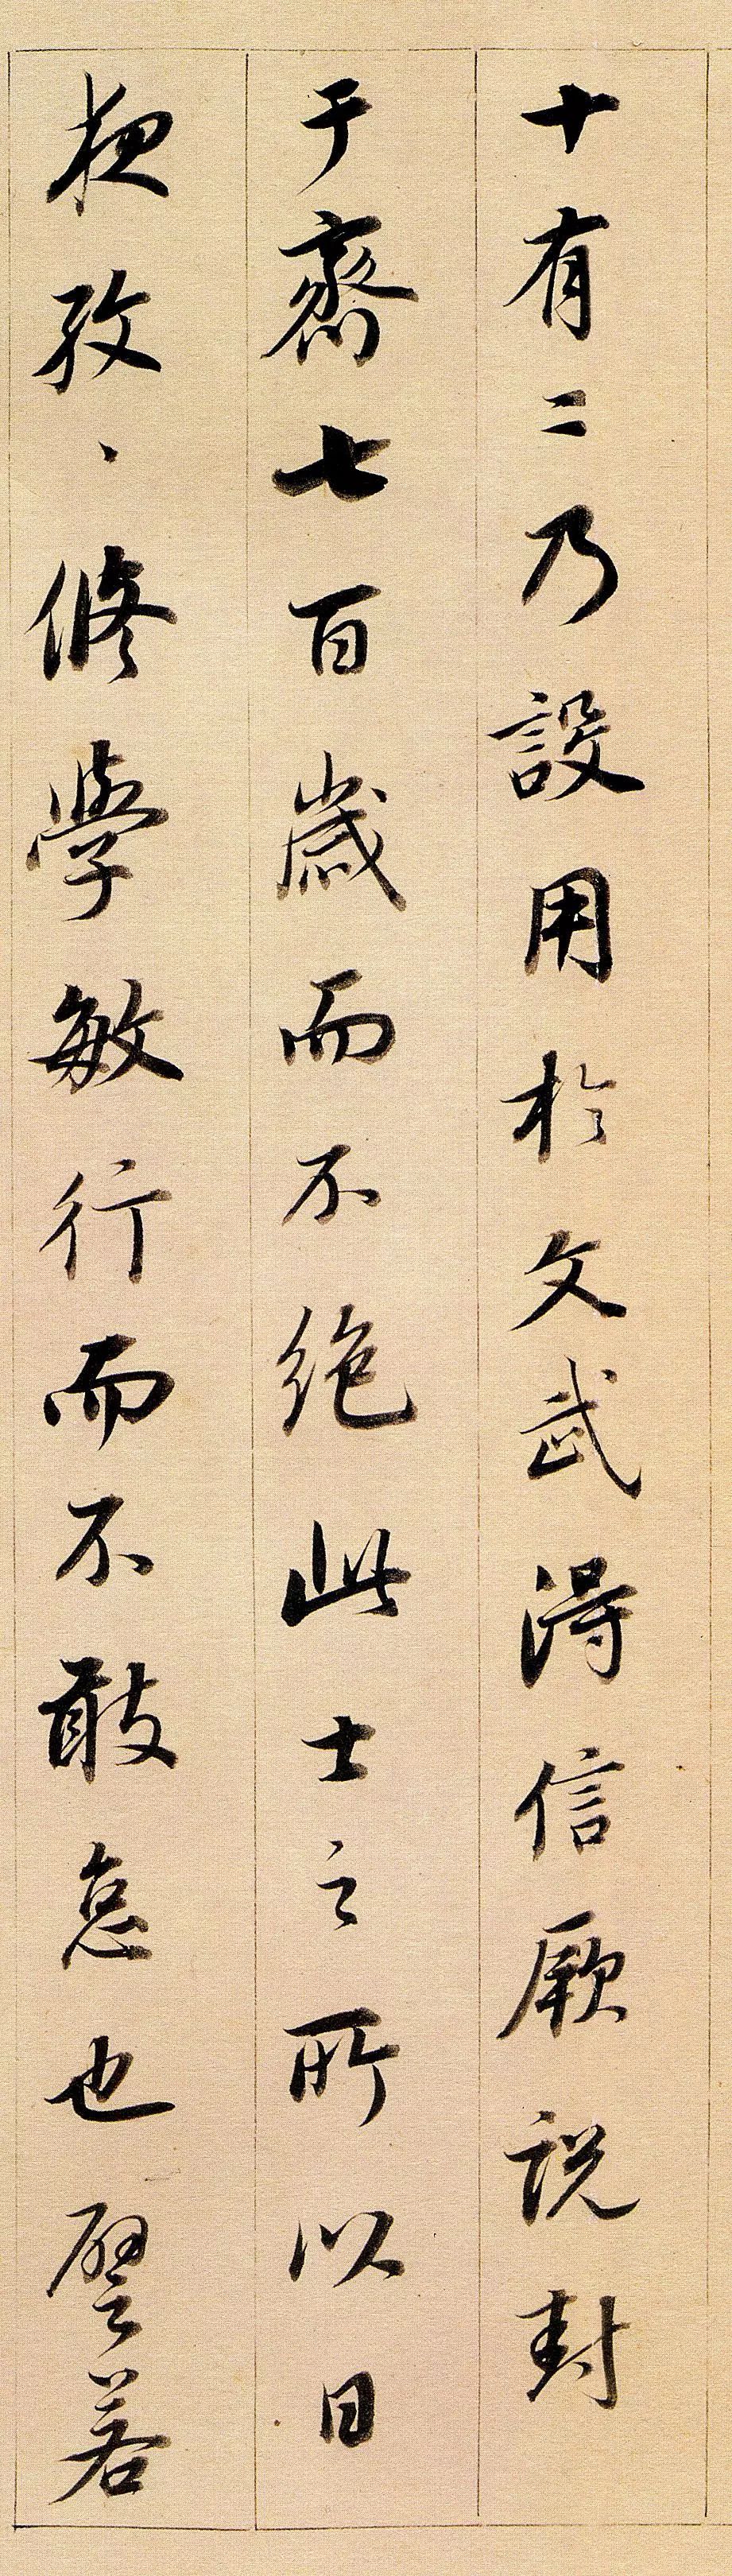 十有二乃設用於文武得信厥説封
于齋七百歳而不絶此士之所以日
夜孜、修學敏行而不敢怠也譬若